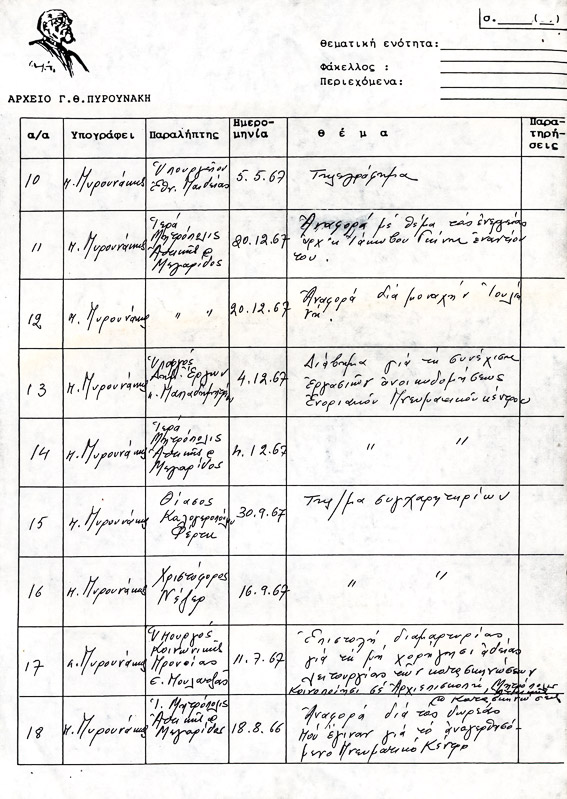 σ.____(__)
Θεματική ενότητα:
Φάκελλος :
Περιεχόμενα:
ΑΡΧΕΙΟ Γ.Θ.ΠΥΡΟΥΝΑΚΗ
α/α Υπογράφει Παραλήπτης Ημερομηνία θέμα Παρατηρήσεις
10 π. Πυρουνάκης Ὑπουργεῖον Ἐθν. Παιδείας 5.5.67 Τηλεγράφημα
11 π. Πυρουνάκης Ἱερά Μητρόπολις Ἀττικῆς & Μεγαρίδος 20.12.67 Ἀναφορά μέ θέμα τάς ἐνεργείας ἀρχ. κ Ἰακώβου Γκίνη ἐναντίον του.
12 π. Πυρουνάκης " " 20.12.67 Ἀναφορά διά μοναχήν
13 π. Πυρουνάκης Ὑπουργός Δημ. Ἔργων κ. Παπαδημητρίου 4.12.67 Διάβημα γιά τή συνέχιση ἐργασιῶν ἀνοικοδομήσεως Ἐνοριακοῦ Πνευματικοῦ κέντρου
14 π. Πυρουνάκης Ἱερά Μητρόπολις Ἀττικῆς & Μεγαρίδος 4.12.67 " "
15 π. Πυρουνάκης Θίασος Καλογεροπούλου Φέρτη 30.9.67 Τηλ/μα συγχαρητηρίων
16 π. Πυρουνάκης Χριστόφορος Νέζερ 16.9.67 " "
17 π. Πυρουνάκης Ὑπουργός Κοινωνικῆς Προνοίας 11.7.67 Ἐπιστολή διαμαρτυρίας γιά τή μή χορήγηση ἀδείας λειτουργίας τῶν κατασκηνώσεων Κοινοποίηση σέ Ἀρχιεπισκοπή, Μητρόπολη
18 π. Πυρουνάκης Ἱ. Μητρόπολις Ἀττικῆς & Μεγαρίδος 18.8.66 Ἀναφορά διά τάς δωρεάς πού ἔγιναν γιά τό ἀνεγερθησόμενο Πνευματικό Κέντρο